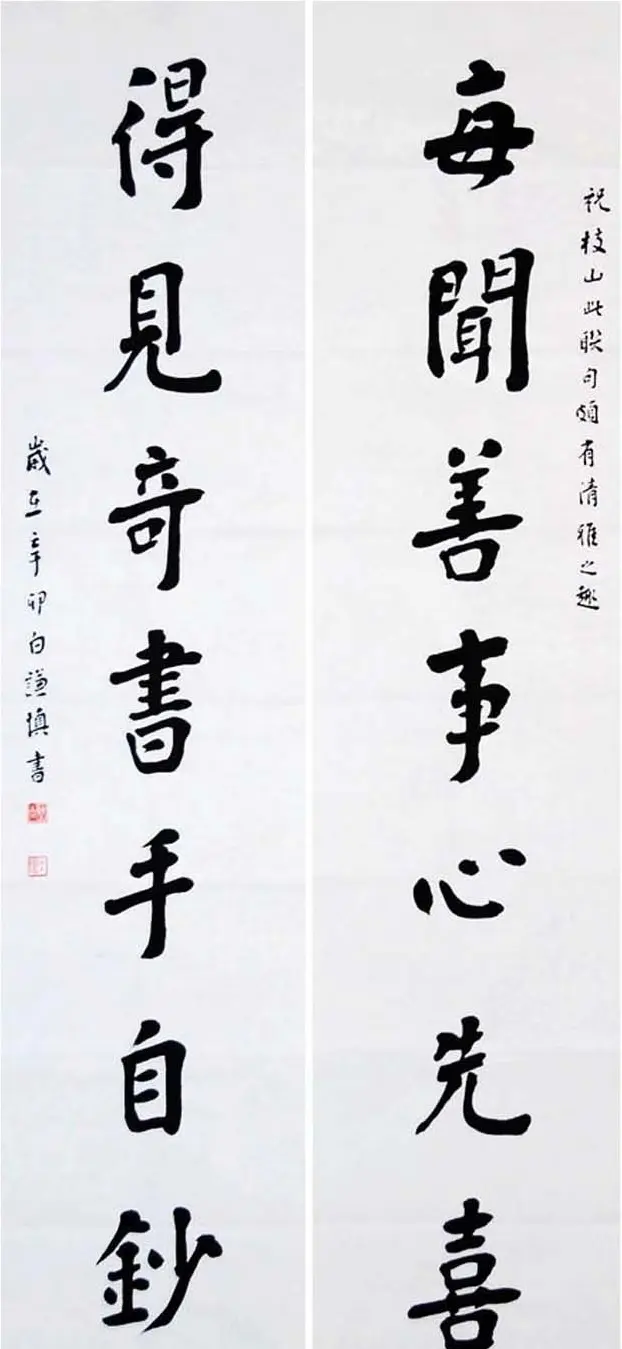 祝枝山此联句颇有清雅之趣
每聞善事心先喜
得見奇書手自鈔
歲在辛卯白謙慎書